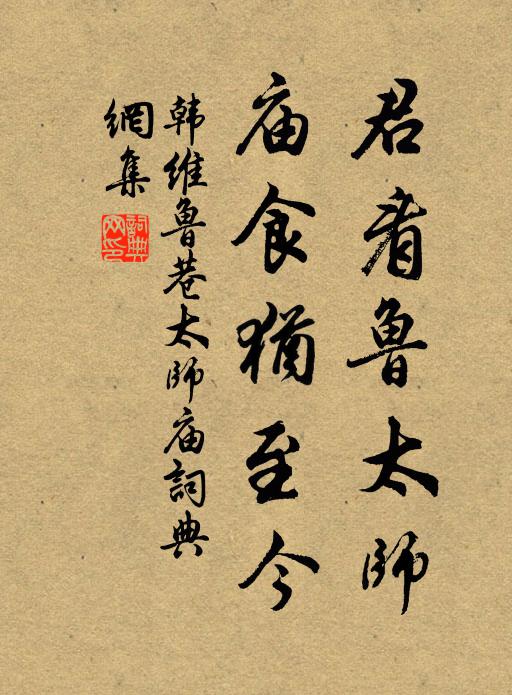 君看鲁太师
庙食犹至今
韩维鲁巷太师庙词典
网集
词典网印